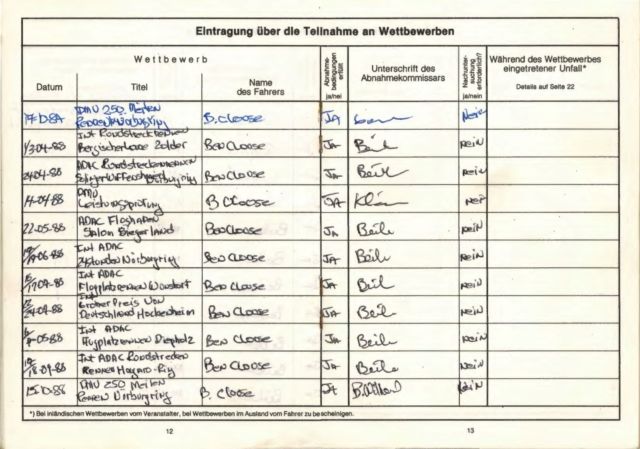 Eintragung über die Teilnahme an Wettbewerben
Wettbewerb
Datum
Titel
Name
des Fahrers
Abnahme-
bedingungen
erfüllt
ja/nei
Unterschrift des
Abnahmekommissars
Nachunter-
suchung
erforderlich?
ja/nein
Während des Wettbewerbes
eingetretener Unfall*
Details auf Seite 22
DMV 250 Meilen
B. Cloose JA Nein
Int Rundstreckenrennen
Bergischer Löwe Zolder Ben Cloose JA Beil Nein
ADAC Rundstreckenrennen
24-04-88 Ben Cloose JA Beil Nein
DMV
14-04-88 Leistungsprüfung B Cloose JA Nein
ADAC
22-05-88 Siegerland Ben Cloose JA Beil Nein
Int ADAC
24 stunden Nürburgring Ben Cloose JA Beil Nein
Int ADAC
Flugplatzrennen Wunstorf Ben Cloose JA Beil Nein
Großer Preis Von
Deutschland Hockenheim Ben Cloose JA Beil Nein
Int ADAC
Flugplatzrennen Diepholz Ben Cloose JA Beil Nein
Int ADAC Rundstrecken
Rennen Ben Cloose JA Beil Nein
DMV 250 Meilen
Rennen Nürburgring B. Cloose JA Nein
*) Bei inländischen Wettbewerben vom Veranstalter, bei Wettbewerben im Ausland vom Fahrer zu bescheinigen.
12
13